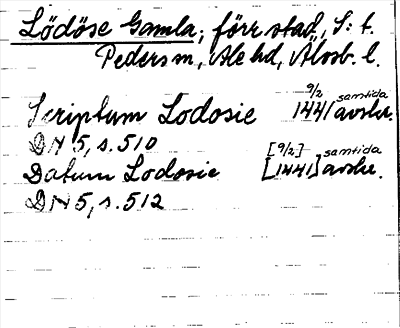 Lödöse Gamla, förr stad, S:t.
Peders sn, Ale hd, Älvsb. l.
Scriptum Lodosie 9/2 1441 samtida avskr.
DN 5, s. 510
Datum Lodosie [9/2] [1441] samtida avskr.
DN 5, s. 512